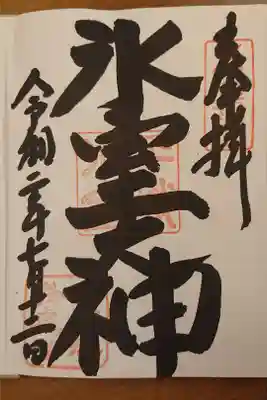 奉拝
氷室大神
令和二年七月十二日